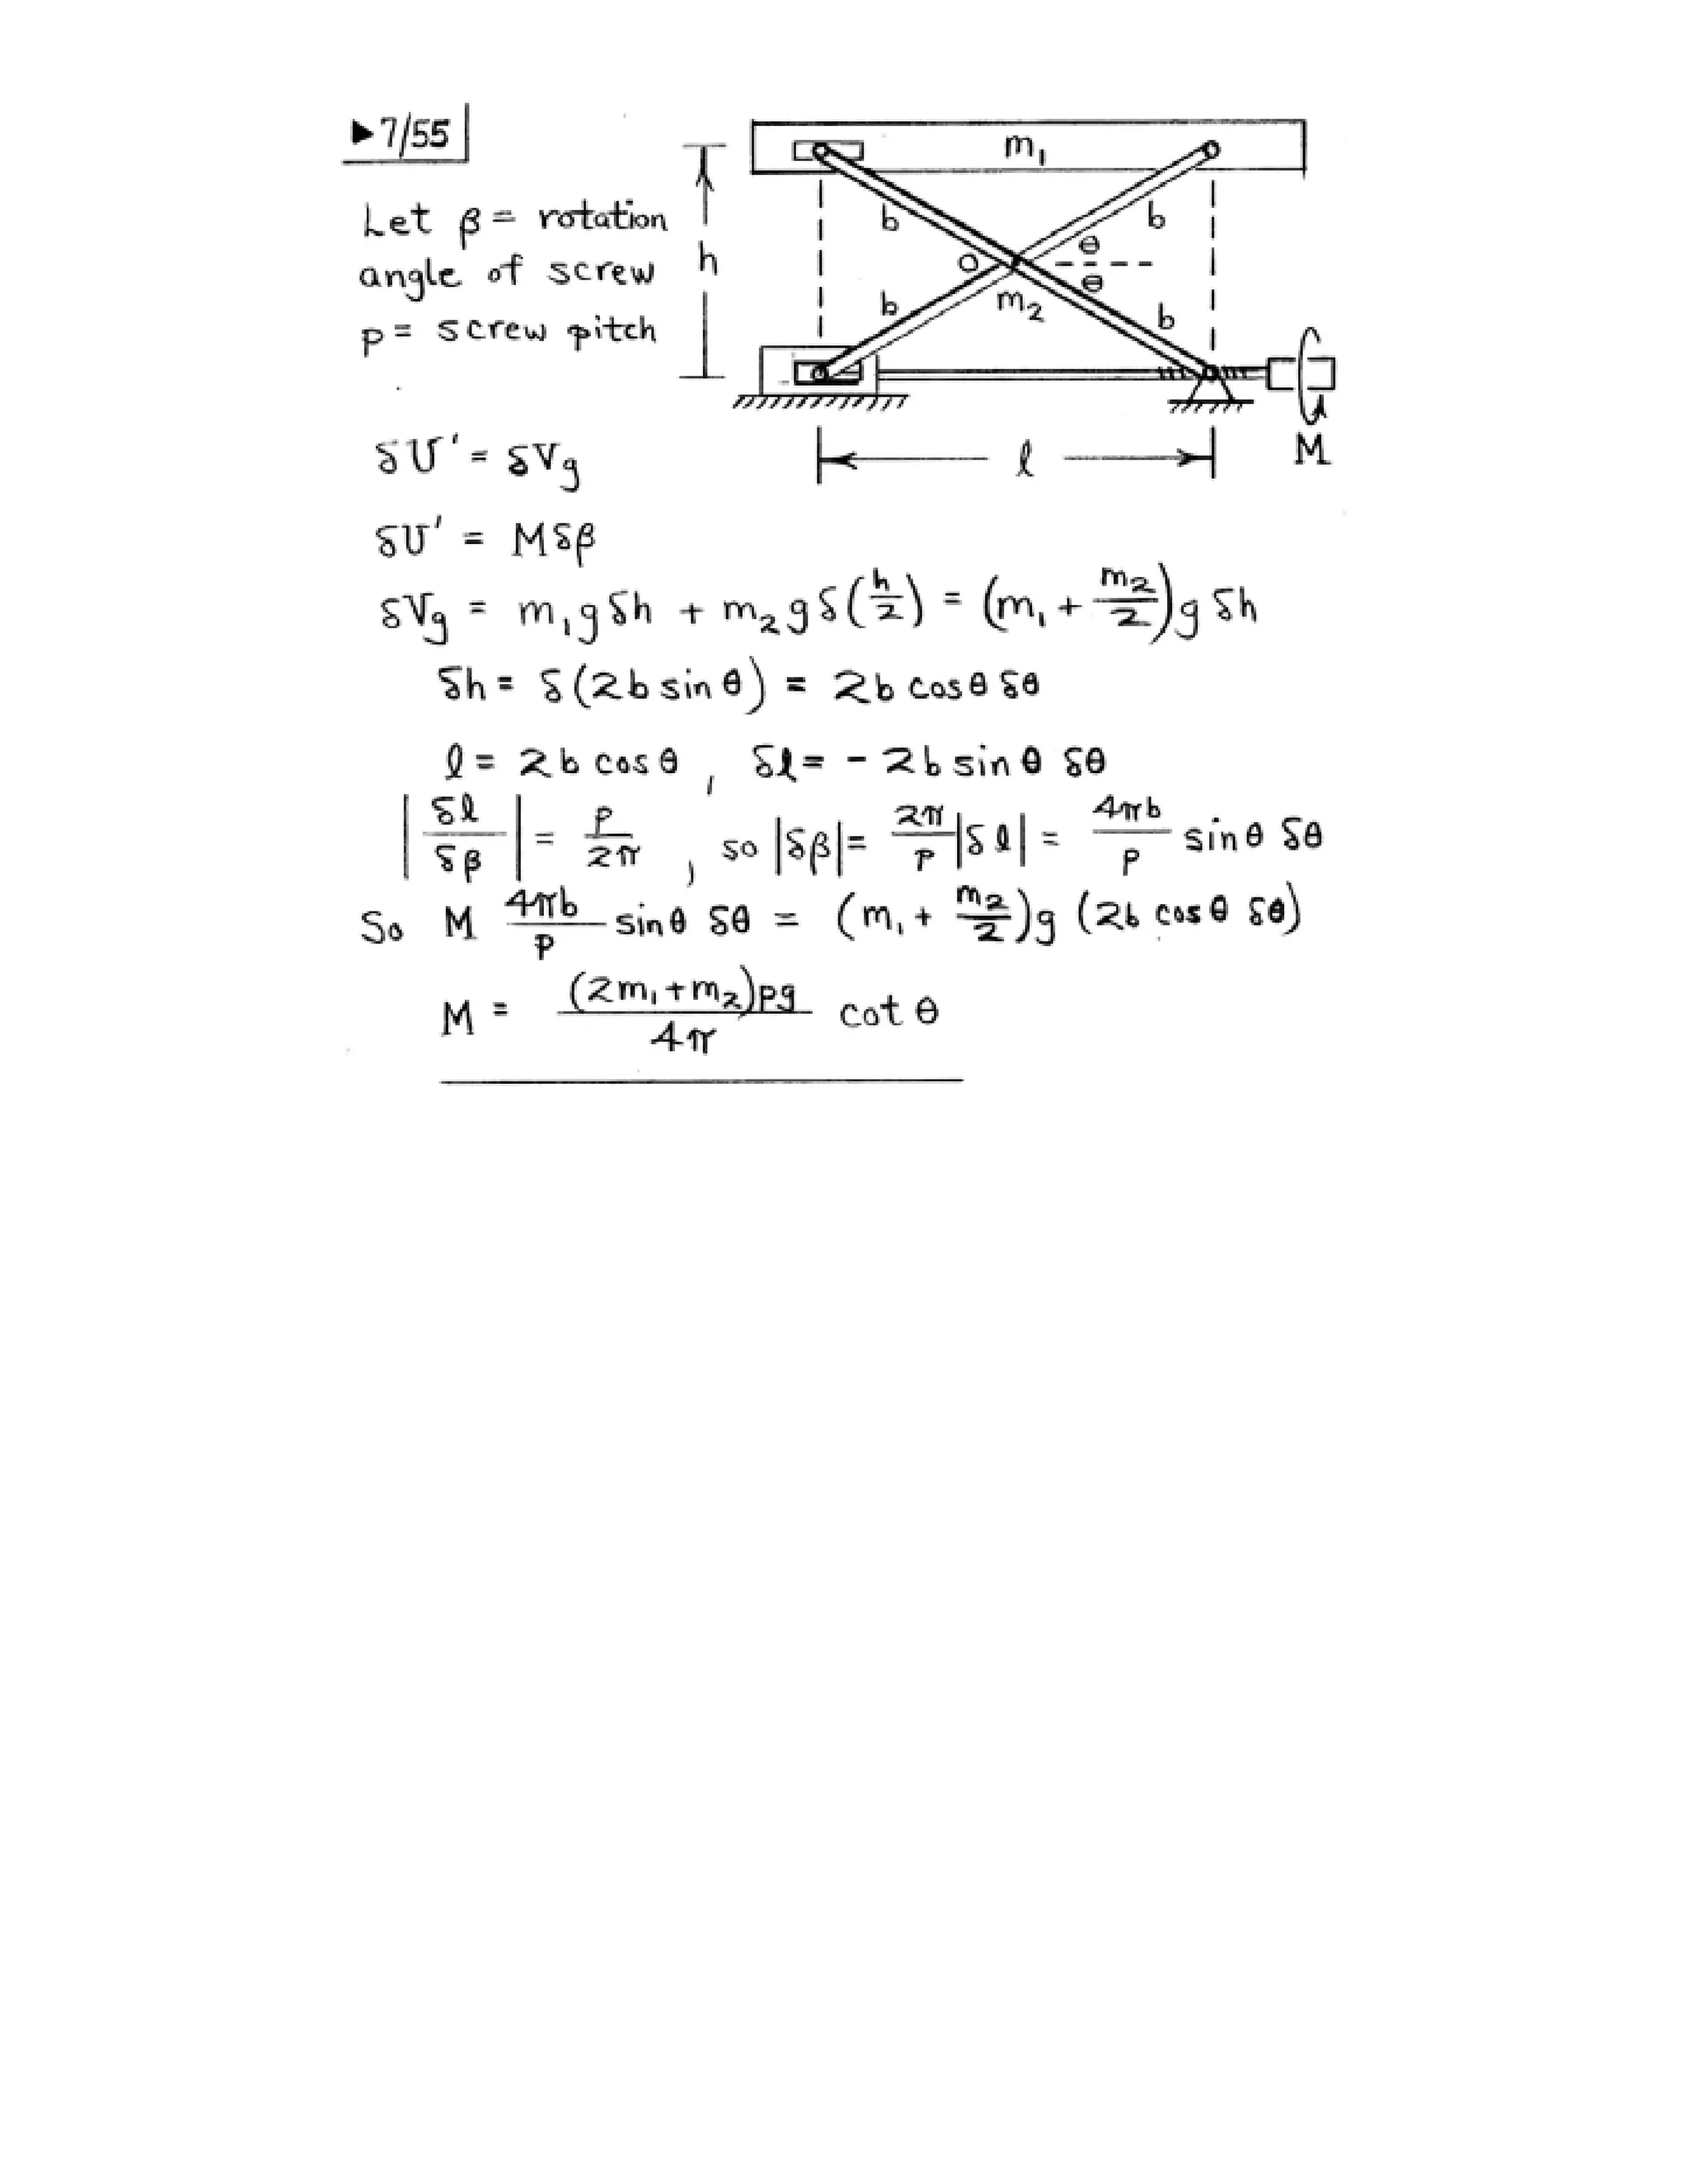 ▶7/55
Let β = rotation
angle of screw
p = screw pitch
m₁
b
b
h
θ
O
θ
b
m₂
b
l
M
δU' = δVg
δU' = Mδβ
δVg = m₁gδh + m₂gδ(h/2) = (m₁ + m₂/2)g δh
δh = δ(2b sin θ) = 2b cos θ δθ
l = 2b cos θ , δl = - 2b sin θ δθ
|δl/δβ| = p/2π , so |δβ| = 2π/p |δl| = 4πb/p sin θ δθ
So M 4πb/p sin θ δθ = (m₁ + m₂/2)g (2b cos θ δθ)
M = (2m₁+m₂)pg/4π cot θ